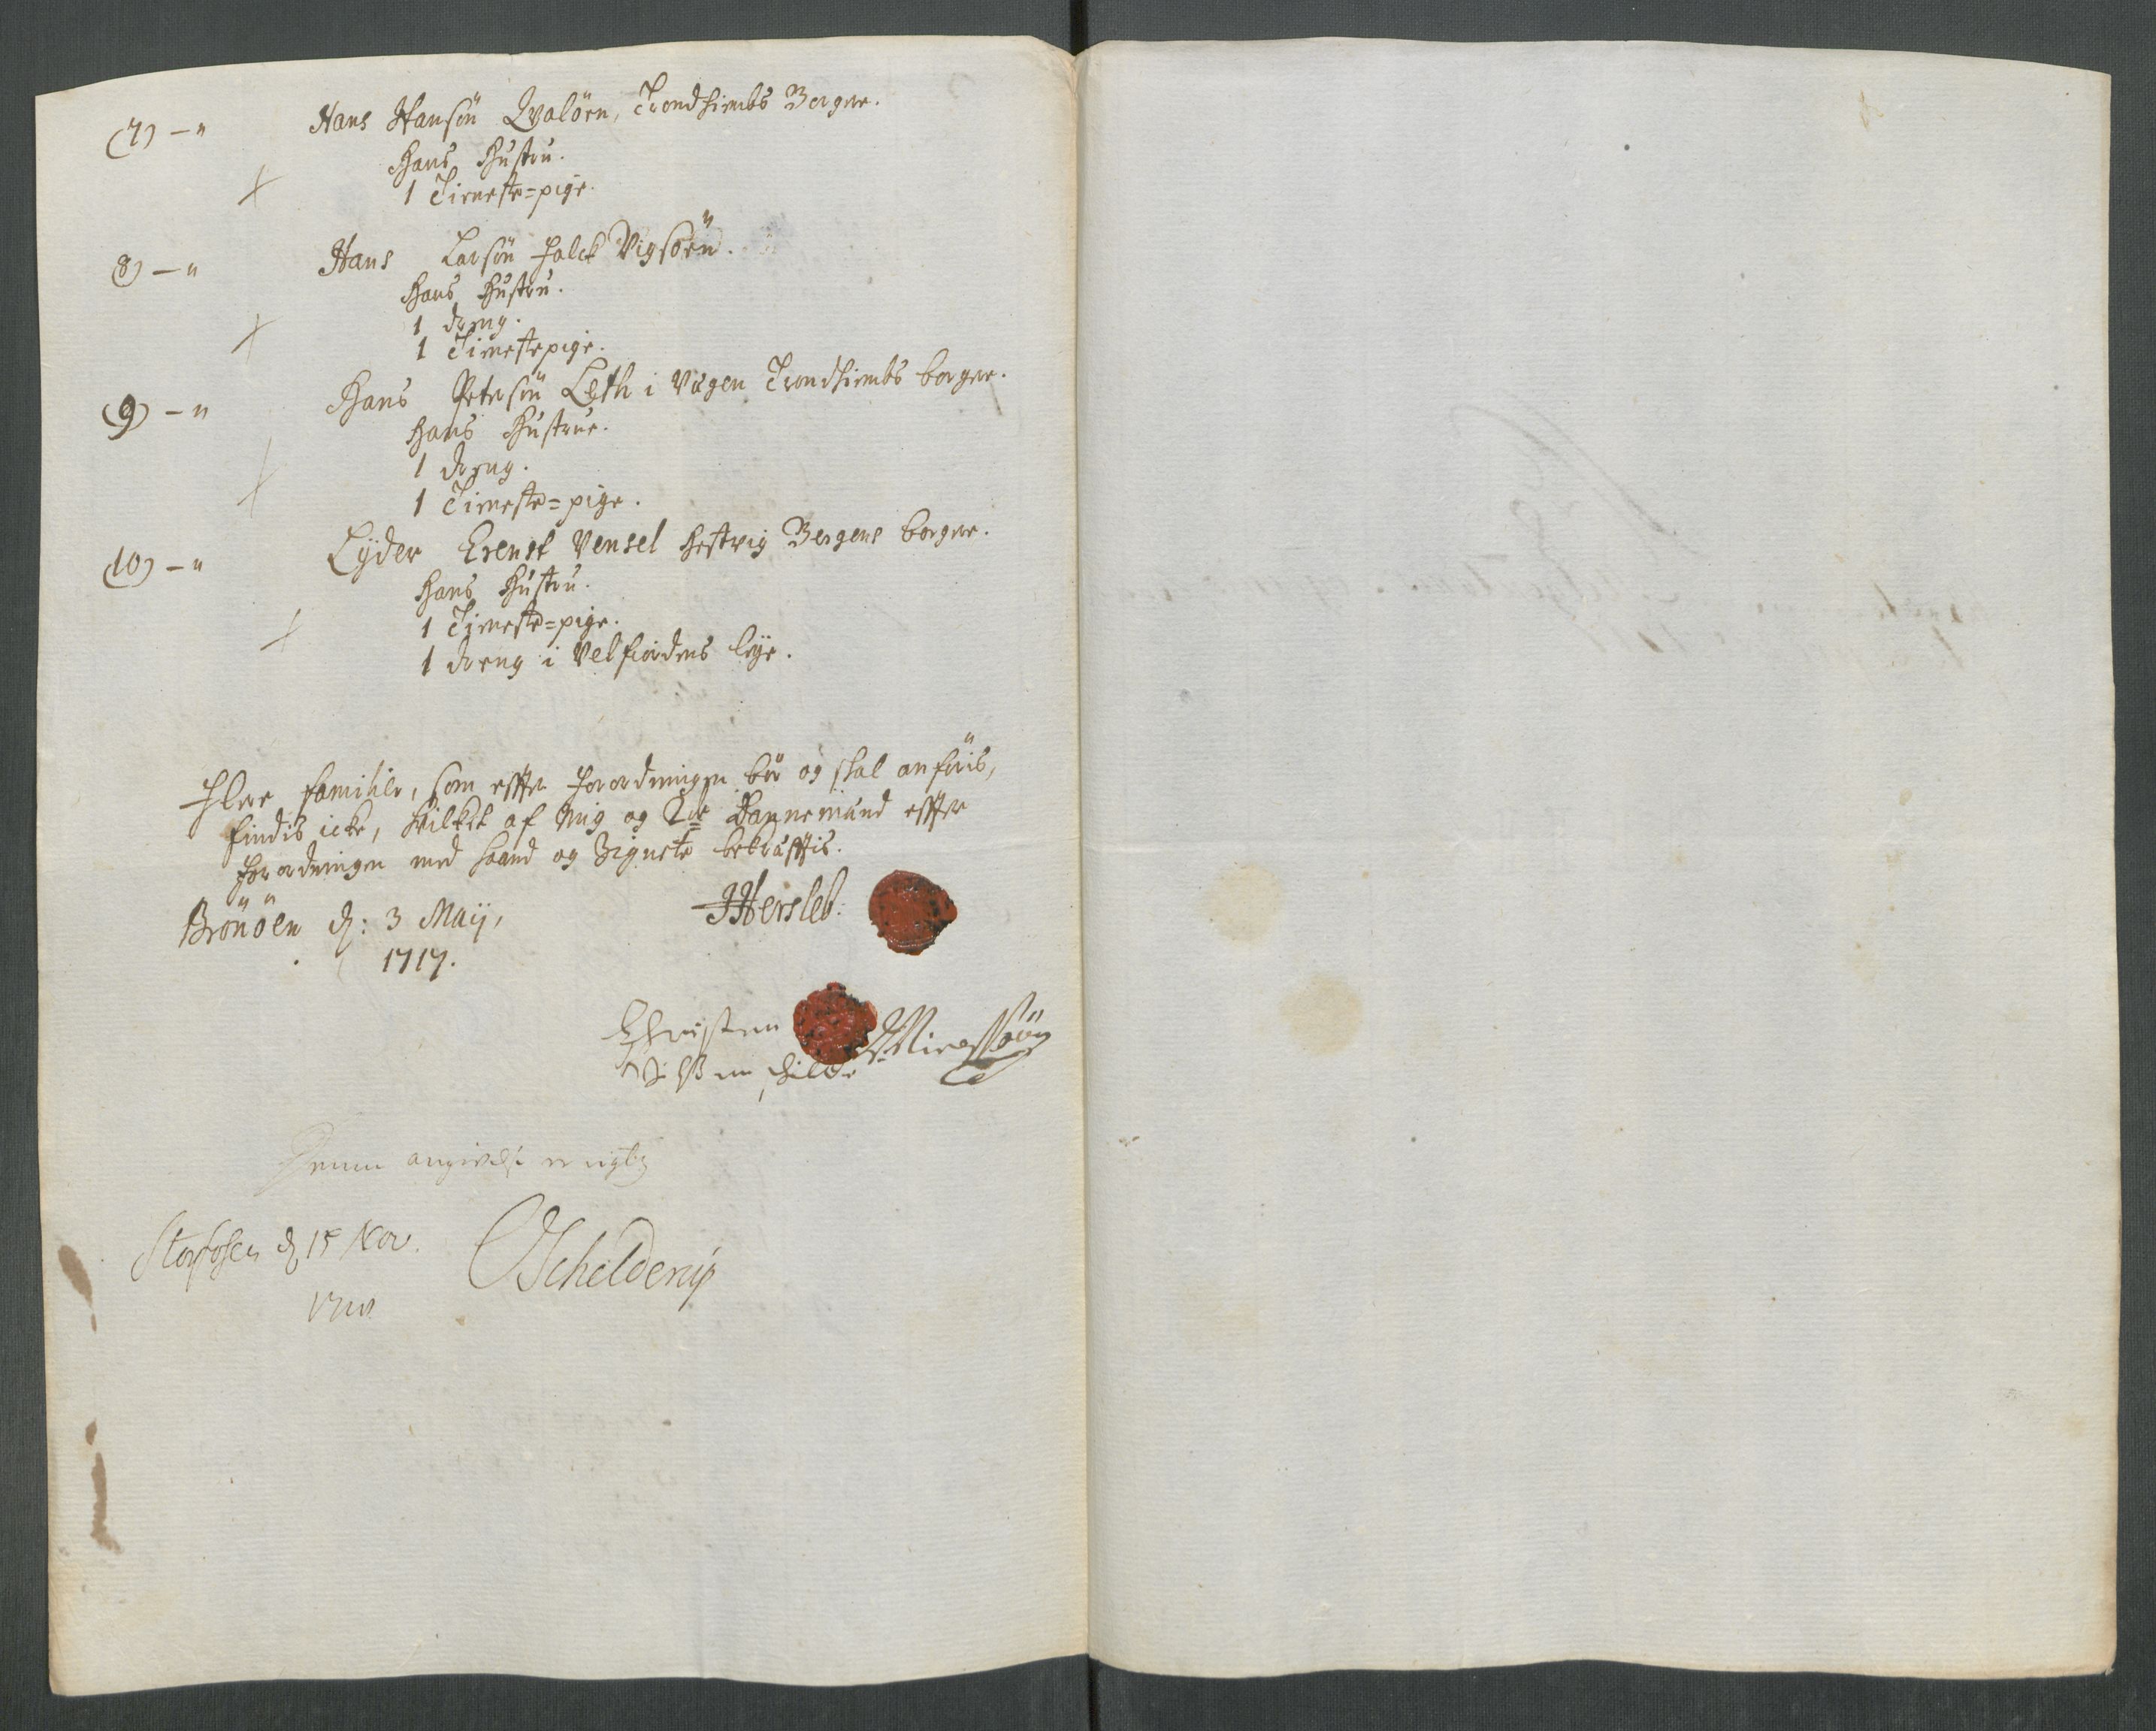 (7) – " Hans Hansön Qvalöen, Trondhiembs Borger.
Hans Hustru.
1 Tieneste=pige.
8) – " Hans Larsön Falck Vigsöen.
Hans Hustru.
1 dreng.
1 Tienestepige.
(9) – " Hans Petersön Leth i Vågen Trondhiembs borger.
Hans Hustrue.
1 dreng.
1 Tieneste=pige.
(10) – " Lÿder Erenst Vensel Hestvig Bergens borger.
Hans Hustru.
1 Tieneste=pige.
1 dreng i Velfiordens leye.
Flere familier, som effter forordningen bör og skal anföris,
findis icke, hvilket af Mig og Dannemænd effter
forordningen med haand og Signete bekræfftis.
Brönöen d: 3 Maij,
1717.
Hersleb:
Christen
Denne angivelse er rigtig
Storfosen d 15 Nov.
Schelderup